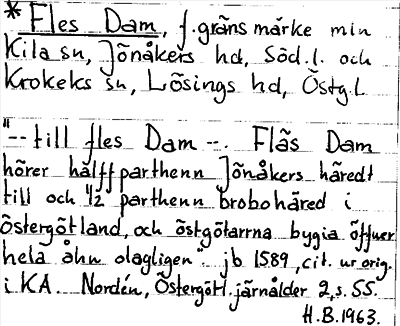 * Fles Dam, f. gräns märke min
Kila sn, Jönåkers hd, Söd.l. och
Krokeks sn, Lösings hd, Östg.l
"-- till fles Dam --. Fläs Dam
hörer hälff parthenn Jönåkers häredt
till och 1/2 parthenn brobohäred i
östergötland, och östgötarna bygia öffuer
hela åhn olagligen". jb 1589, cit. ur orig.
i KA. Nordén, Östergötl. järnålder 2, s. 55.
H.B. 1963.